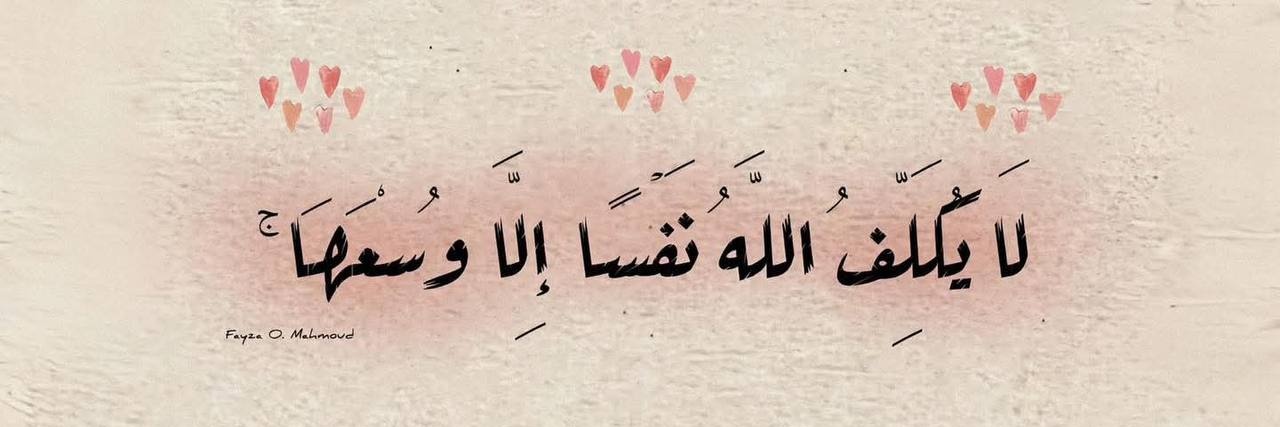 لَا يُكَلِّفُ اللَّهُ نَفْسًا إِلَّا وُسْعَهَا ۚ
Fayza O. Mahmoud